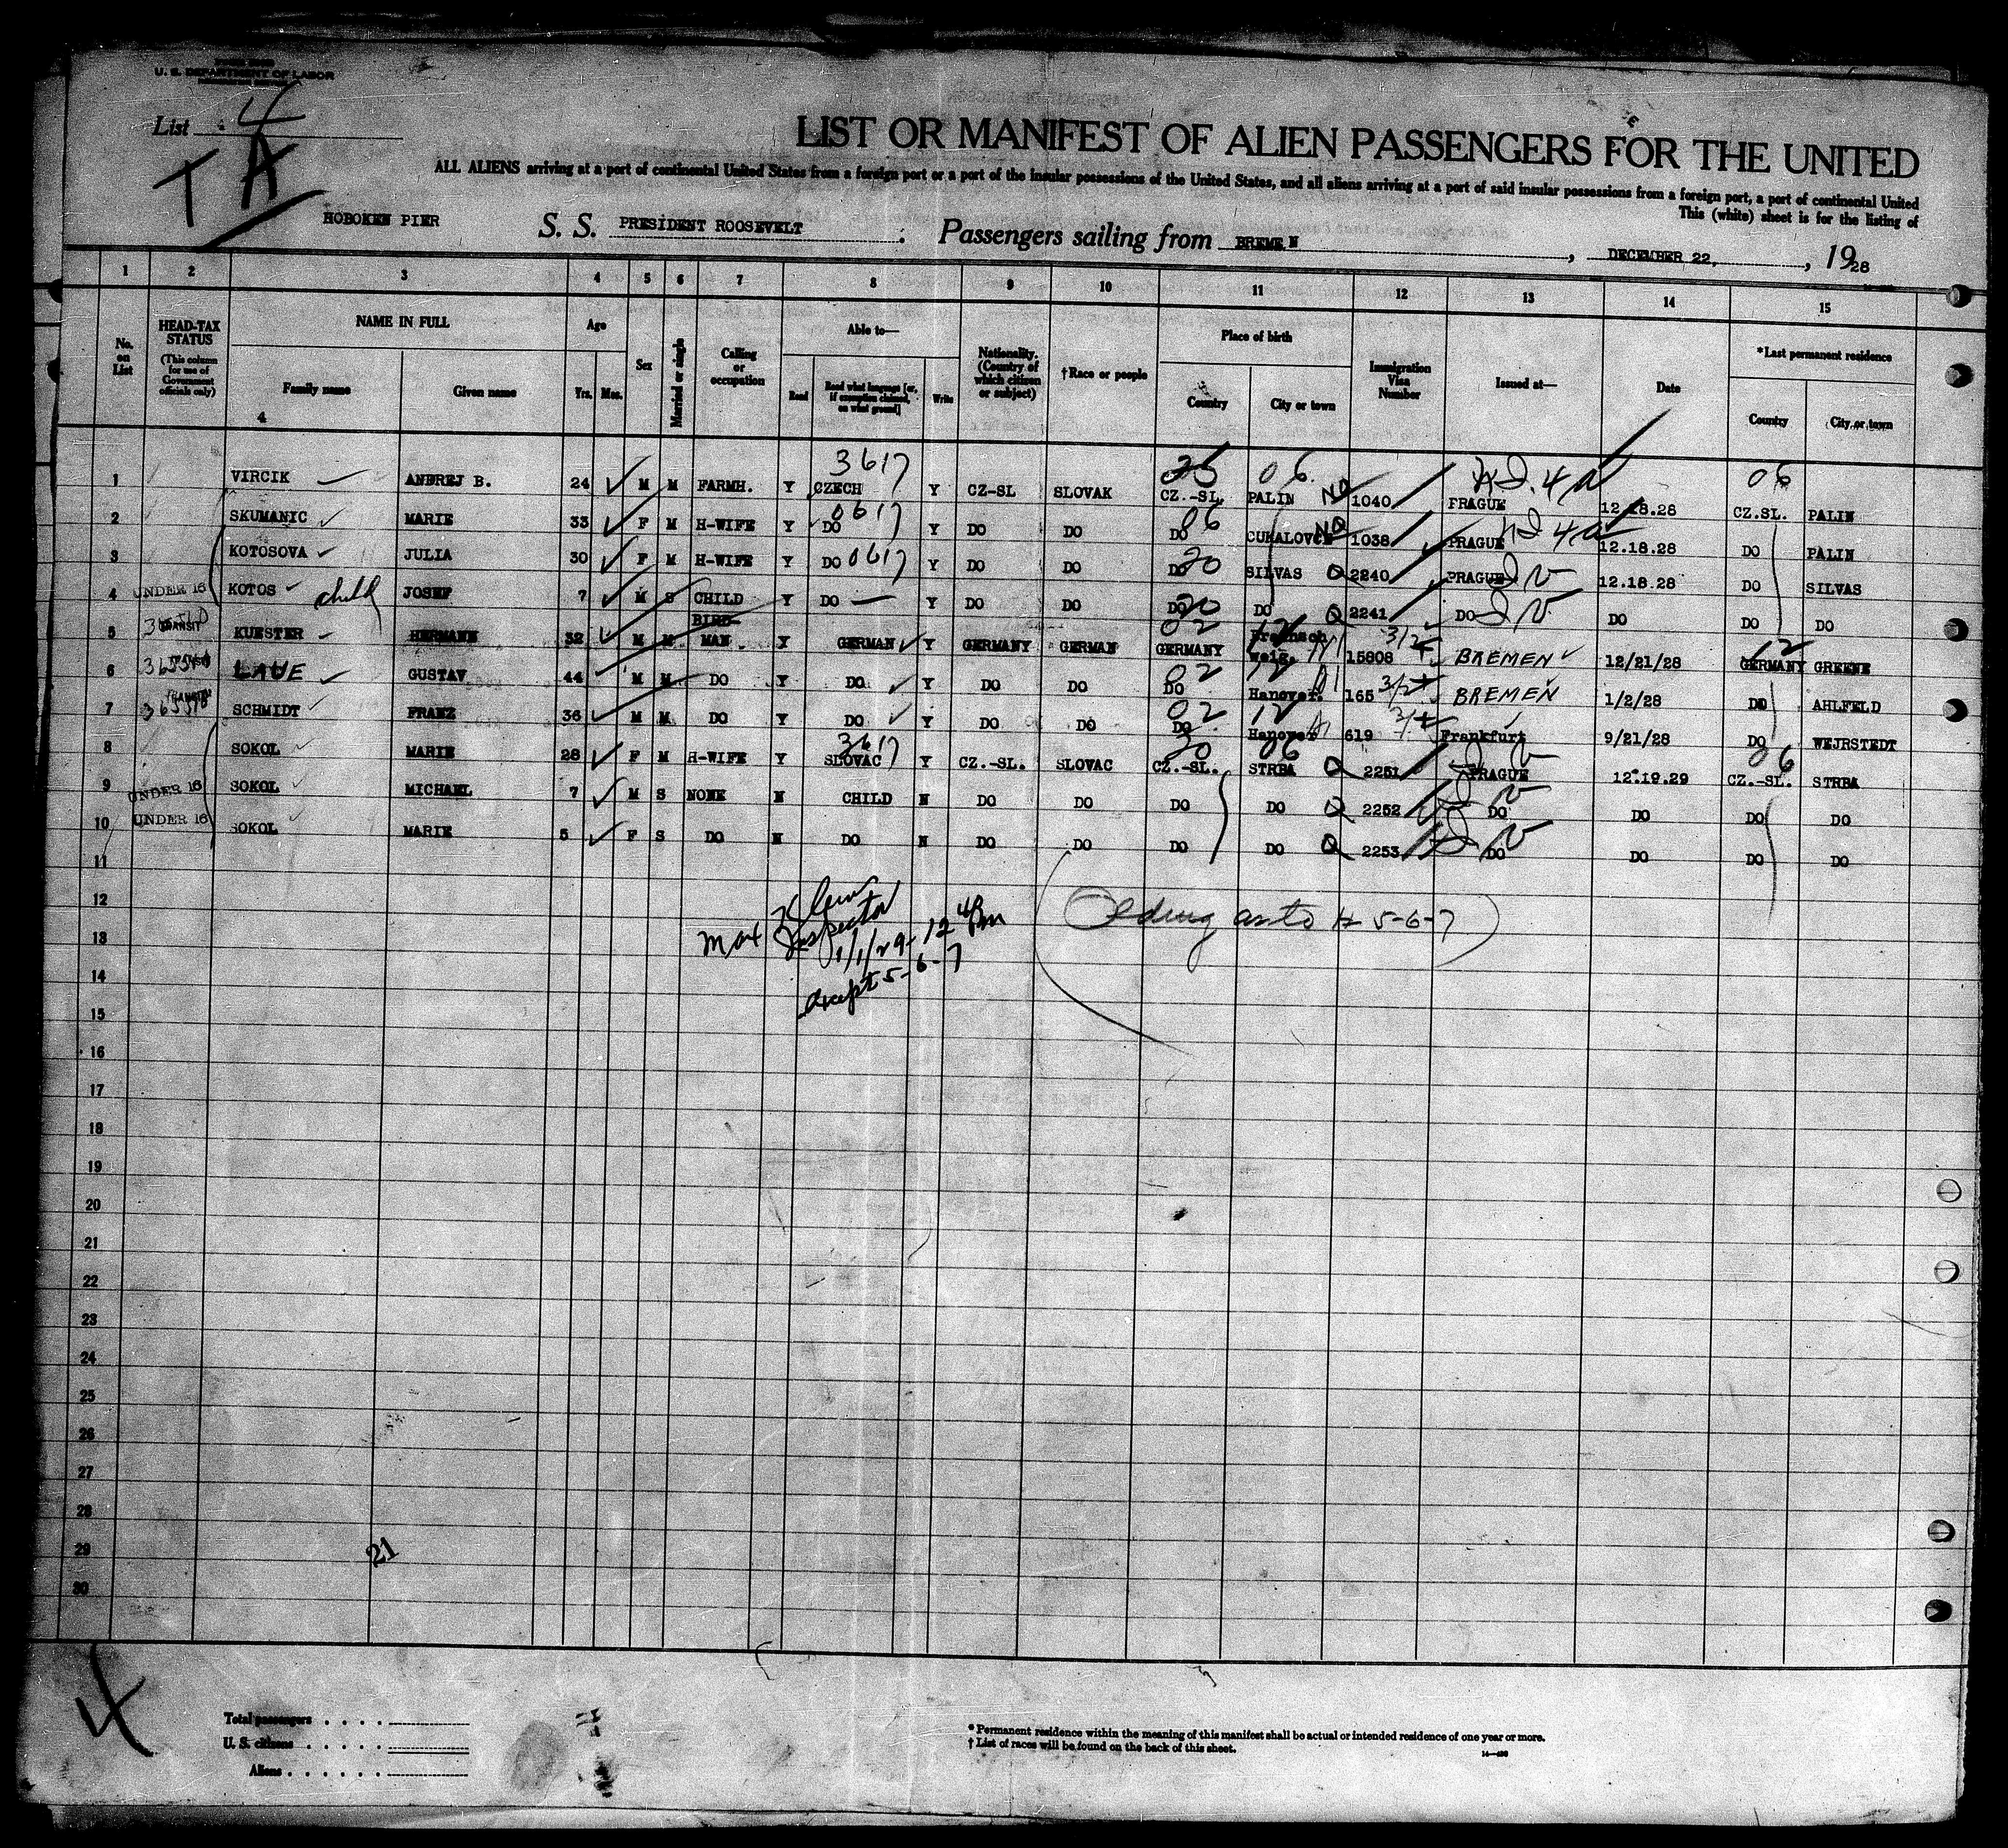 U. S. DEPARTMENT OF LABOR
List 4
TA
LIST OR MANIFEST OF ALIEN PASSENGERS FOR THE UNITED
ALL ALIENS arriving at a port of continental United States from a foreign port or a port of the insular possessions of the United States, and all aliens arriving at a port of said insular possessions from a foreign port, a port of continental United
This (white) sheet is for the listing of
HOBOKEN PIER S. S. PRESIDENT ROOSEVELT Passengers sailing from BREMEN, DECEMBER 22, 1928
1 2 3 4 5 6 7 8 9 10 11 12 13 14 15
No. on List HEAD-TAX STATUS (This column for use of Government officials only) NAME IN FULL Family name Given name Age Yrs. Mos. Sex Married or single Calling or occupation Able to— Read Read what language [or, if exemption claimed, on what ground] Write Nationality. (Country of which citizen or subject) †Race or people Place of birth Country City or town Immigration Visa Number Issued at— Date *Last permanent residence Country City or town
4
3617 25 06 06
1 VIRCIK ANDREJ B. 24 M M FARMH. Y CZECH Y CZ-SL SLOVAK CZ.-SL. PALIN NQ 1040 PRAGUE 12.18.28 CZ.SL. PALIN
0617 06
2 SKUMANIC MARIE 33 F M H-WIFE Y DO Y DO DO DO CUKALOVCE NQ 1038 PRAGUE 12.18.28 DO PALIN
3 KOTOSOVA JULIA 30 F M H-WIFE Y DO 0617 Y DO DO DO 20 SILVAS Q 2240 PRAGUE 12.18.28 DO SILVAS
4 UNDER 16 KOTOS child JOSEF 7 M S CHILD Y DO — Y DO DO DO 20 DO Q 2241 DO DO DO DO
5 TRANSIT KUESTER HERMANN 32 M M BIRD-MAN Y GERMAN Y GERMANY GERMAN 02 GERMANY 12 15808 BREMEN 12/21/28 12 GERMANY GREENE
6 LAUE GUSTAV 44 M M DO Y DO Y DO DO 02 DO 12 Hanover. 165 BREMEN 1/2/28 DO AHLFELD
7 TRANSIT SCHMIDT FRANZ 36 M M DO Y DO Y DO DO 02 DO 12 Hanover 619 Frankfurt 9/21/28 DO WEJRSTEDT
3617 20 06 06
8 SOKOL MARIE 28 F M H-WIFE Y SLOVAC Y CZ.-SL. SLOVAC CZ.-SL. STRBA Q 2251 PRAGUE 12.19.29 CZ.-SL. STRBA
9 UNDER 16 SOKOL MICHAEL 7 M S NONE N CHILD N DO DO DO DO Q 2252 DO DO DO DO
10 UNDER 16 SOKOL MARIE 5 F S DO N DO N DO DO DO DO Q 2253 DO DO DO DO
11
12
Max
Inspector
1/1/29 - 12 40 PM
except 5-6-7
as to # 5-6-7
13
14
15
16
17
18
19
20
21
22
23
24
25
26
27
28
29
21
30
4
Total passengers
U. S. citizens
Aliens
* Permanent residence within the meaning of this manifest shall be actual or intended residence of one year or more.
† List of races will be found on the back of this sheet.